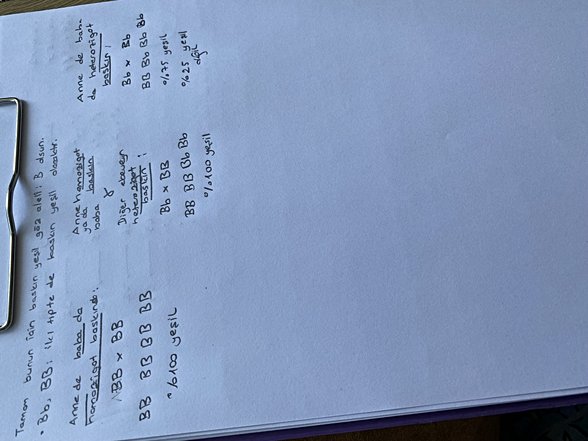 Tamam bunun için baskın yeşil göz aleli; B olsun.
• Bb, BB: iki tipte de baskın yeşil olacaktır.
Anne de baba da
homozigot baskınsa:
BB x BB
BB BB BB BB
%100 yeşil
Anne homozigot
ya da baskın
baba
Diğer ebeveyn
heterozigot
baskın:
Bb x BB
BB BB Bb Bb
%100 yeşil
Anne de baba
da heterozigot
baskın:
Bb x Bb
BB Bb Bb Bb
%75 yeşil
%25 yeşil
değil